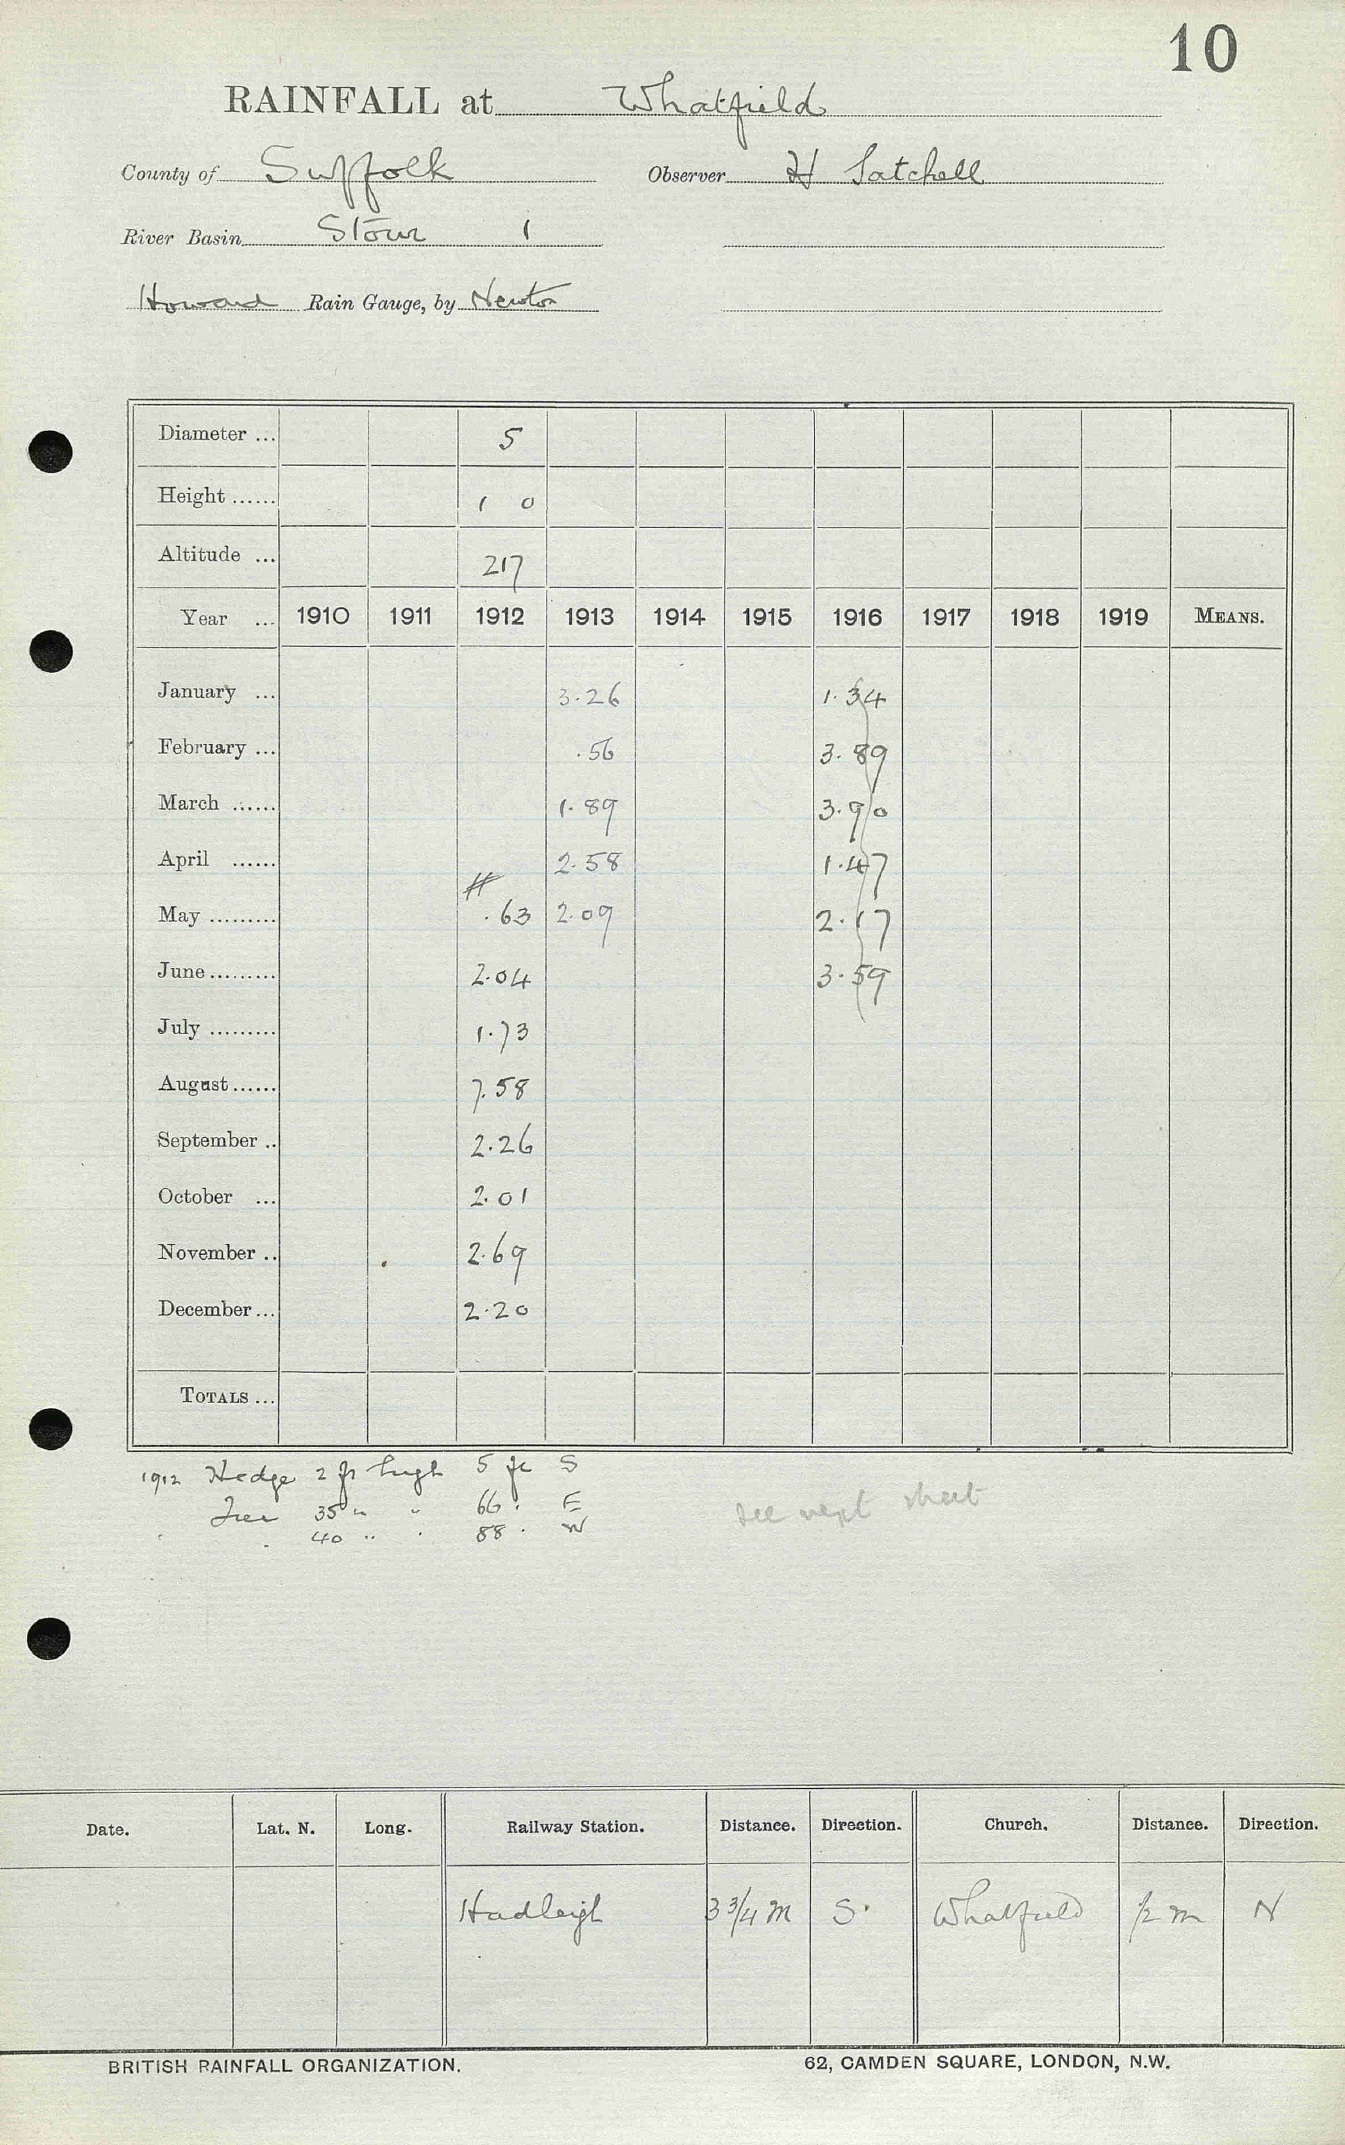 10
RAINFALL at Whatfield
County of Suffolk Observer H Satchell
River Basin Stour 1
Howard Rain Gauge, by Newton
Diameter ... 5
Height ...... 1 0
Altitude ... 217
Year ... 1910 1911 1912 1913 1914 1915 1916 1917 1918 1919 MEANS.
January ... 3.26 1.34
February ... .56 3.89
March ...... 1.89 3.90
April ...... 2.58 1.47
May ......... # .63 2.09 2.17
June ......... 2.04 3.59
July ......... 1.73
August ...... 7.58
September .. 2.26
October ... 2.01
November .. 2.69
December ... 2.20
TOTALS ...
1912 Hedge 2 ft high 5 ft S
Tree 35 " " 66 " E
" " 40 " " 88 " W
see next sheet
Date. Lat. N. Long. Railway Station. Distance. Direction. Church. Distance. Direction.
Hadleigh 3 3/4 m S. Whatfield 1/2 m N
BRITISH RAINFALL ORGANIZATION. 62, CAMDEN SQUARE, LONDON, N.W.